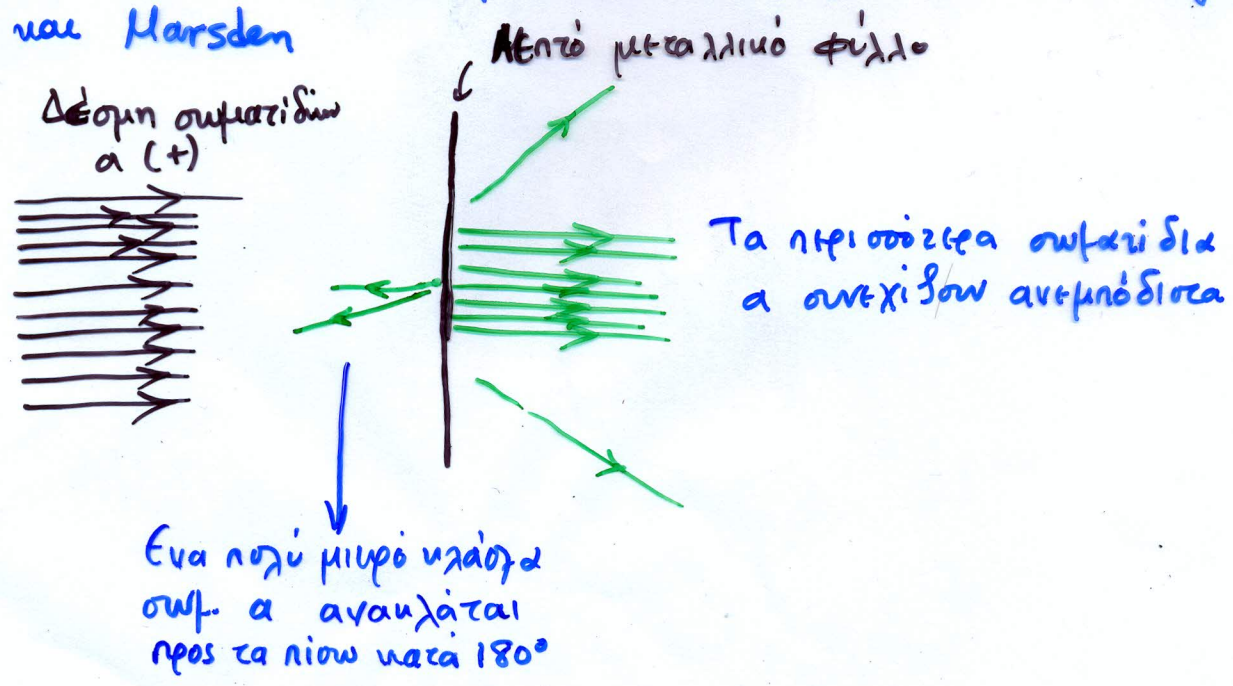 και Marsden
Λεπτό μεταλλικό φύλλο
Δέσμη σωματιδίων
α (+)
Τα περισσότερα σωματίδια
α συνεχίζουν ανεμπόδιστα
Ενα πολύ μικρό κλάσμα
σωμ. α ανακλάται
προς τα πίσω κατά 180°